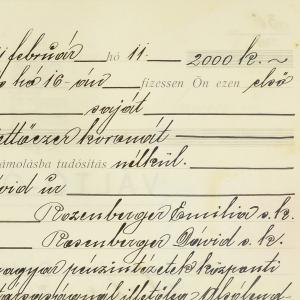 február hó 11. 2000 k. ~
hó 16-án fizessen Ön ezen első
saját
ettőezer koronát
ámolásba tudósítás nélkül.
vid úr
Rozenberger Emilia s. k.
Rosenberger Dávid s. k.
magyar pénzintézetek központi